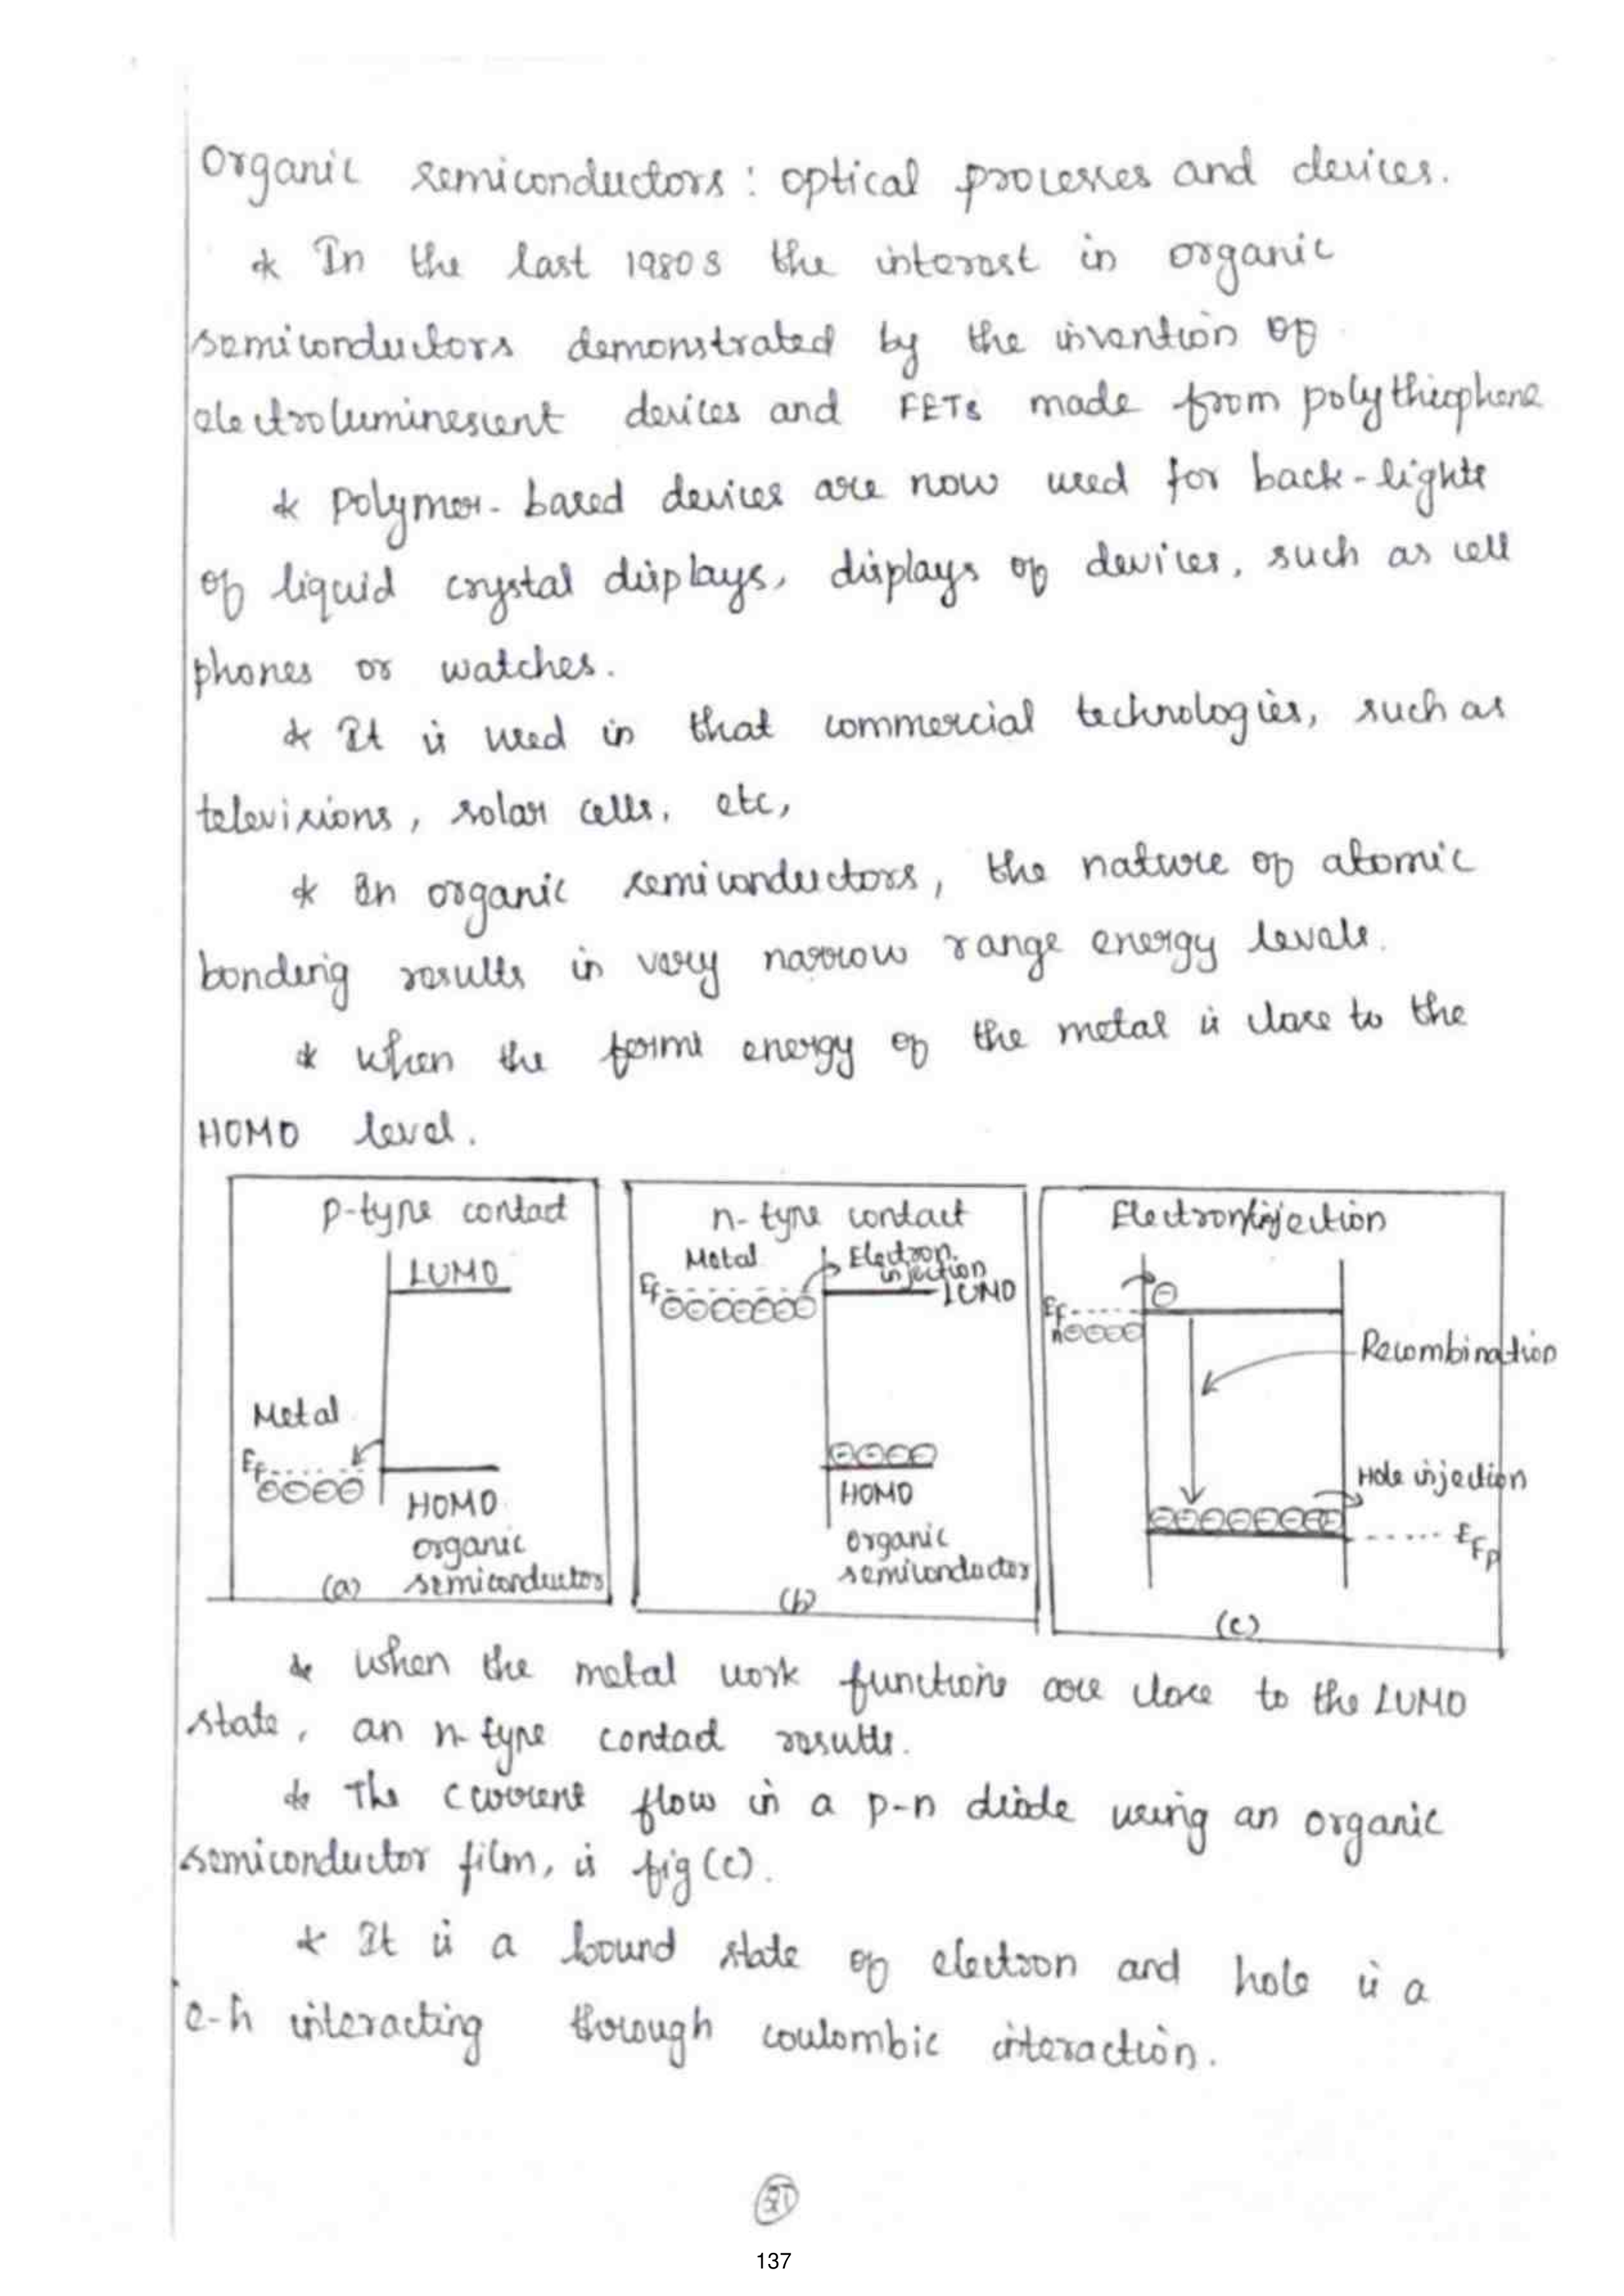 Organic semiconductors: optical processes and devices.
* In the last 1980s the interest in organic
semiconductors demonstrated by the invention of
electroluminescent devices and FETs made from polythiophene
* polymer-based devices are now used for back-lights
of liquid crystal displays, displays of devices, such as cell
phones or watches.
* It is used in that commercial technologies, such as
televisions, solar cells, etc,
* In organic semiconductors, the nature of atomic
bonding results in very narrow range energy levels.
* when the fermi energy of the metal is close to the
HOMO level.
p-type contact
LUMO
Metal
EF
HOMO
organic
semiconductor
(a)
n-type contact
Metal
Electron
injection
EF
LUMO
HOMO
organic
semiconductor
(b)
Electron injection
EFn
Recombination
Hole injection
EFp
(c)
* when the metal work functions are close to the LUMO
state, an n-type contact results.
* The current flow in a p-n diode using an organic
semiconductor film, is fig(c).
* It is a bound state of electron and hole is a
e-h interacting through coulombic interaction.
137